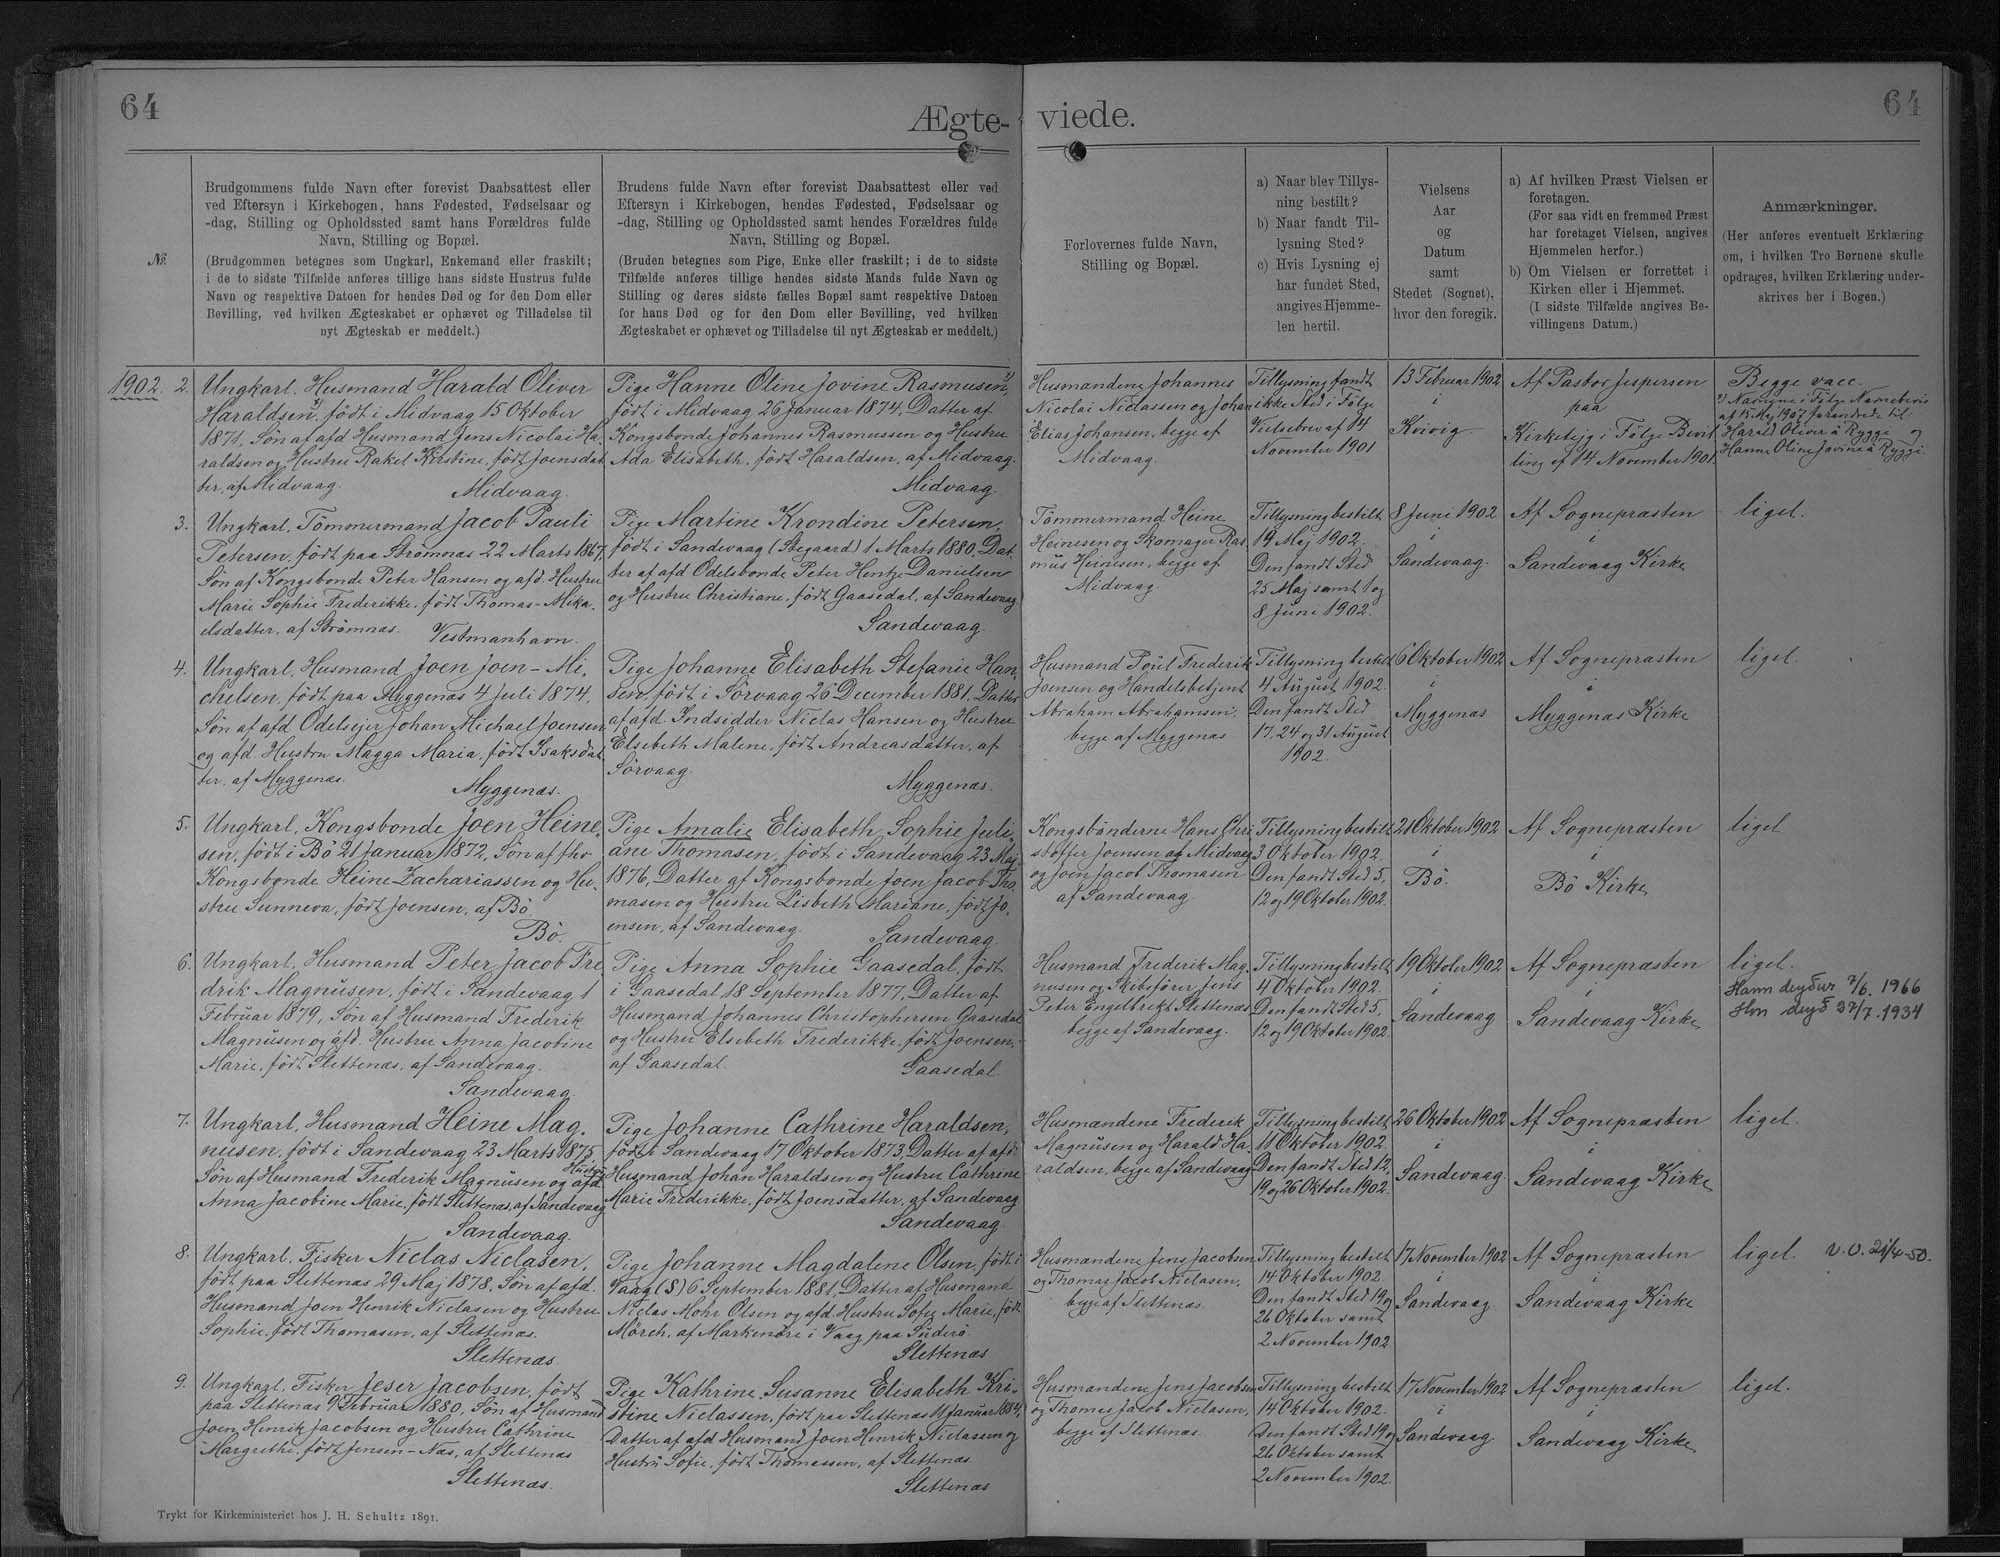 64
Ægte-
viede.
64
№
Brudgommens fulde Navn efter forevist Daabsattest eller
ved Eftersyn i Kirkebogen, hans Fødested, Fødselsaar og
-dag, Stilling og Opholdssted samt hans Forældres fulde
Navn, Stilling og Bopæl.
(Brudgommen betegnes som Ungkarl, Enkemand eller fraskilt;
i de to sidste Tilfælde anføres tillige hans sidste Hustrus fulde
Navn og respektive Datoen for hendes Død og for den Dom eller
Bevilling, ved hvilken Ægteskabet er ophævet og Tilladelse til
nyt Ægteskab er meddelt.)
Brudens fulde Navn efter forevist Daabsattest eller ved
Eftersyn i Kirkebogen, hendes Fødested, Fødselsaar og
-dag, Stilling og Opholdssted samt hendes Forældres fulde
Navn, Stilling og Bopæl.
(Bruden betegnes som Pige, Enke eller fraskilt; i de to sidste
Tilfælde anføres tillige hendes sidste Mands fulde Navn og
Stilling og deres sidste fælles Bopæl samt respektive Datoen
for hans Død og for den Dom eller Bevilling, ved hvilken
Ægteskabet er ophævet og Tilladelse til nyt Ægteskab er meddelt.)
Forlovernes fulde Navn,
Stilling og Bopæl.
a) Naar blev Tillys-
ning bestilt?
b) Naar fandt Til-
lysning Sted?
c) Hvis Lysning ej
har fundet Sted,
angives Hjemme-
len hertil.
Vielsens
Aar
og
Datum
samt
Stedet (Sognet),
hvor den foregik.
a) Af hvilken Præst Vielsen er
foretagen.
(For saa vidt en fremmed Præst
har foretaget Vielsen, angives
Hjemmelen herfor.)
b) Om Vielsen er forrettet i
Kirken eller i Hjemmet.
(I sidste Tilfælde angives Be-
villingens Datum.)
Anmærkninger.
(Her anføres eventuelt Erklæring
om, i hvilken Tro Børnene skulle
opdrages, hvilken Erklæring under-
skrives her i Bogen.)
1902. 2.
Ungkarl. Husmand Harald Oliver
Haraldsen, født i Midvaag 15 Oktober
1871, Søn af afd Husmand Jens Nicolai Ha-
raldsen og Hustru Rakel Kirstine, født Joensdat
ter, af Midvaag.
Midvaag.
Pige Hanne Oline Jovine Rasmusen,
født i Midvaag 26 Januar 1874, Datter af
Kongsbonde Johannes Rasmussen og Hustru
Ada Elisabeth, født Haraldsen, af Midvaag.
Midvaag.
Husmandene Johannes
Nicolai Niclassen og Johan
Elias Johansen, begge af
Midvaag.
Tillysning fandt
ikke Sted i Følge
Vielsebrev af 14
November 1901
13 Februar 1902
i
Kvivig
Af Pastor Jespersen
paa
Kirketejg i Følge Bevil
ling af 14 November 1901
Begge vacc.
Navnene i Følge Navnebevis
af 15 Maj 1907 forandrede til:
Harald Oliver á Rygge og
Hanne Oline Jovine á Ryggi.
3.
Ungkarl, Tømmermand Jacob Pauli
Petersen, født paa Strømnæs 22 Marts 1867,
Søn af Kongsbonde Peter Hansen og afd. Hustru
Marie Sophie Frederikke, født Thomas-Mika-
elsdatter, af Strømnæs.
Vestmanhavn.
Pige Martine Krondine Petersen,
født i Sandevaag (Stegaard) 1 Marts 1880, Dat-
ter af afd Odelsbonde Peter Hentze Danielsen
og Hustru Christiane, født Gaasedal, af Sandevaag
Sandevaag.
Tømmermand Heine
Heinesen og Skomager Ras
mus Heinesen, begge af
Midvaag
Tillysning bestilt
19 Maj 1902.
Den fandt Sted
25 Maj samt 1 og
8 Juni 1902.
8 Juni 1902
i
Sandevaag.
Af Sognepræsten
i
Sandevaag Kirke
liget.
4.
Ungkarl, Husmand Joen Joen-Mi-
chelsen, født paa Myggenæs 4 Juli 1874,
Søn af afd Odelsejer Johan Michael Joensen
og afd. Hustru Magga Maria, født Isaksdat
ter, af Myggenæs.
Myggenæs.
Pige Johanne Elisabeth Stefanie Han-
sen, født i Sørvaag 26 December 1881, Datter
af afd. Indsidder Niclas Hansen og Hustru
Elsebeth Malene, født Andreasdatter, af
Sørvaag.
Myggenæs.
Husmand Poul Frederik
Joensen og Handelsbetjent
Abraham Abrahamsen,
begge af Myggenæs
Tillysning bestilt
4 August 1902.
Den fandt Sted
17, 24 og 31 August
1902.
6 Oktober 1902
i
Myggenæs
Af Sognepræsten
i
Myggenæs Kirke
liget.
5.
Ungkarl, Kongsbonde Joen Heine-
sen, født i Bø 21 Januar 1872, Søn af fhv
Kongsbonde Heine Zachariassen og Hu-
stru Sunneva, født Joensen, af Bø.
Bø.
Pige Amalie Elisabeth Sophie Juli-
ane Thomasen, født i Sandevaag 23 Maj
1876, Datter af Kongsbonde Joen Jacob Tho-
masen og Hustru Lisbeth Mariane, født Jo-
ensen, af Sandevaag.
Sandevaag.
Kongsbønderne Hans Chri
stoffer Joensen af Midvaag
og Joen Jacob Thomasen
af Sandevaag
Tillysning bestilt
3 Oktober 1902.
Den fandt Sted 5,
12 og 19 Oktober 1902.
21 Oktober 1902
i
Bø.
Af Sognepræsten
i
Bø Kirke
liget
6.
Ungkarl, Husmand Peter Jacob Fre
drik Magnusen, født i Sandevaag 1
Februar 1879, Søn af Husmand Frederik
Magnusen og afd. Hustru Anna Jacobine
Marie, født Slettenæs, af Sandevaag.
Sandevaag.
Pige Anna Sophie Gaasedal, født
i Gaasedal 18 September 1877, Datter af
Husmand Johannes Christophersen Gaasedal
og Hustru Elsebeth Frederikke, født Joensen,
af Gaasedal.
Gaasedal
Husmand Frederik Mag-
nusen og Skibsfører Jens
Peter Engelbregt Slettenæs
begge af Sandevaag.
Tillysning bestilt
4 Oktober 1902.
Den fandt Sted 5,
12 og 19 Oktober 1902.
19 Oktober 1902
i
Sandevaag
Af Sognepræsten
i
Sandevaag Kirke
liget.
Hann deyður 2/6. 1966
Hon deyð 27/7. 1934
7.
Ungkarl, Husmand Heine Mag-
nusen, født i Sandevaag 23 Marts 1875,
Søn af Husmand Frederik Magnusen og afd. Hustru
Anna Jacobine Marie, født Slettenæs, af Sandevaag
Sandevaag.
Pige Johanne Cathrine Haraldsen,
født i Sandevaag 17 Oktober 1873, Datter af afd
Husmand Johan Haraldsen og Hustru Cathrine
Marie Frederikke, født Joensdatter, af Sandevaag
Sandevaag.
Husmændene Frederik
Magnusen og Harald Ha-
raldsen, begge af Sandevaag
Tillysning bestilt
11 Oktober 1902
Den fandt Sted 12,
19 og 26 Oktober 1902.
26 Oktober 1902
i
Sandevaag.
Af Sognepræsten
i
Sandevaag Kirke
liget.
8.
Ungkarl, Fisker Niclas Niclasen,
født paa Slettenæs 29 Maj 1878, Søn af afd.
Husmand Joen Henrik Niclasen og Hustru
Sophie, født Thomasen, af Slettenæs.
Slettenæs.
Pige Johanne Magdalene Olsen, født i
Vaag (S) 6 September 1881, Datter af Husmand
Niclas Mohr Olsen og afd Hustru Sofie Marie, født
Mørch, af Markenøre i Vaag paa Suderø.
Slettenæs
Husmandene Jens Jacobsen
og Thomas Jacob Niclasen,
begge af Slettenæs.
Tillysning bestilt
14 Oktober 1902.
Den fandt Sted 19 og
26 Oktober samt
2 November 1902
17 November 1902
i
Sandevaag
Af Sognepræsten
i
Sandevaag Kirke
liget. v. v. 21/4-50.
9.
Ungkarl, Fisker Jeser Jacobsen, født
paa Slettenæs 9 Februar 1880, Søn af Husmand
Joen Henrik Jacobsen og Hustru Cathrine
Margrethe, født Jensen-Næs, af Slettenæs
Slettenæs.
Pige Kathrine Susanne Elisabeth Kri-
stine Niclassen, født paa Slettenæs 11 Januar 1884,
Datter af afd Husmand Joen Henrik Niclassen og
Hustru Sofie, født Thomassen, af Slettenæs
Slettenæs
Husmandene Jens Jacobsen
og Thomas Jacob Niclasen,
begge af Slettenæs.
Tillysning bestilt
14 Oktober 1902.
Den fandt Sted 19 og
26 Oktober samt
2 November 1902.
17 November 1902
i
Sandevaag
Af Sognepræsten
i
Sandevaag Kirke
liget.
Trykt for Kirkeministeriet hos J. H. Schultz 1891.